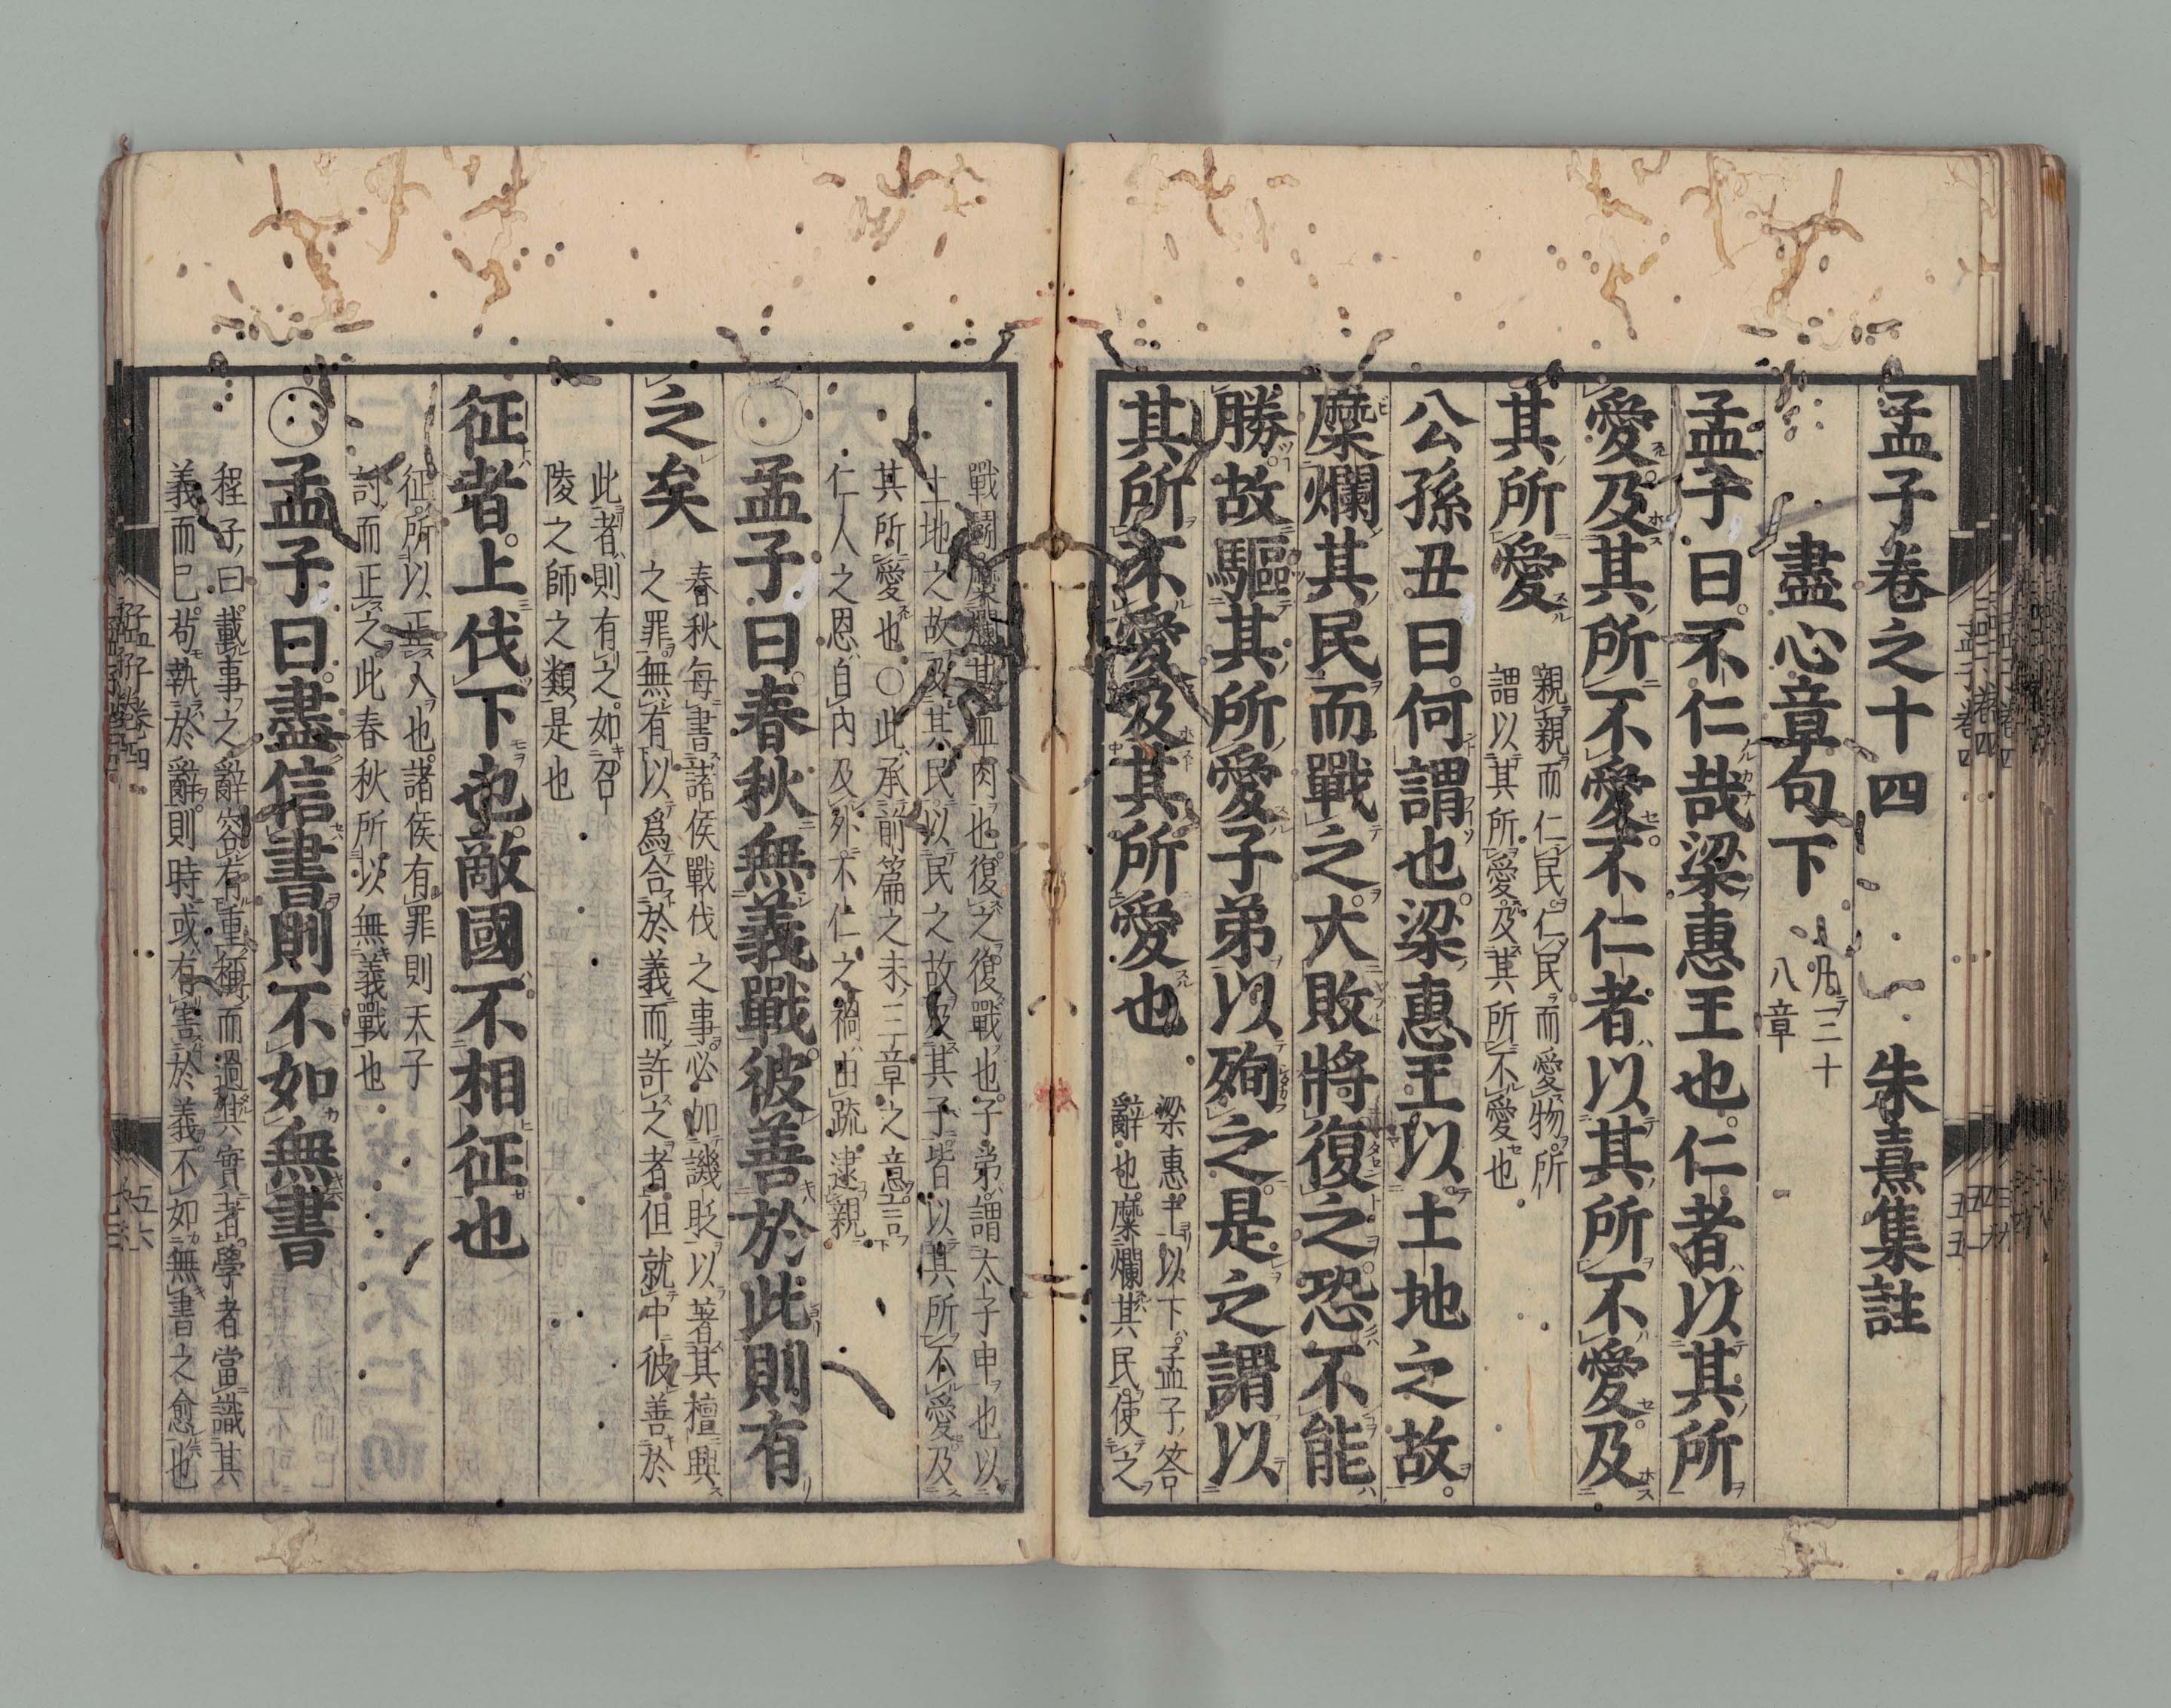 孟子卷之十四　朱熹集註
盡心章句下
凡三十
八章
孟子曰不仁哉梁惠王也仁者以其所
愛及其所不愛不仁者以其所不愛及
其所愛
親親而仁民仁民而愛物所
謂以其所愛及其所不愛也
公孫丑曰何謂也梁惠王以土地之故
糜爛其民而戰之大敗將復之恐不能
勝故驅其所愛子弟以殉之是之謂以
其所不愛及其所愛也
梁惠王以下孟子答
辭也糜爛其民使之
戰鬬糜爛其血肉也復之復戰也子弟謂太子申也以
土地之故及其民以民之故及其子皆以其所不愛及
其所愛也○此承前篇之末三章之意言
仁人之恩自內及外不仁之禍由疏逮親
○孟子曰春秋無義戰彼善於此則有
之矣
春秋每書諸侯戰伐之事必加譏貶以著其擅興
之罪無有以爲合於義而許之者但就中彼善於
此者則有之如召
陵之師之類是也
征者上伐下也敵國不相征也
征所以正人也諸侯有罪則天子
討而正之此春秋所以無義戰也
○孟子曰盡信書則不如無書
程子曰載事之辭容有重稱而過其實者學者當識其
義而已苟執於辭則時或有害於義不如無書之愈也